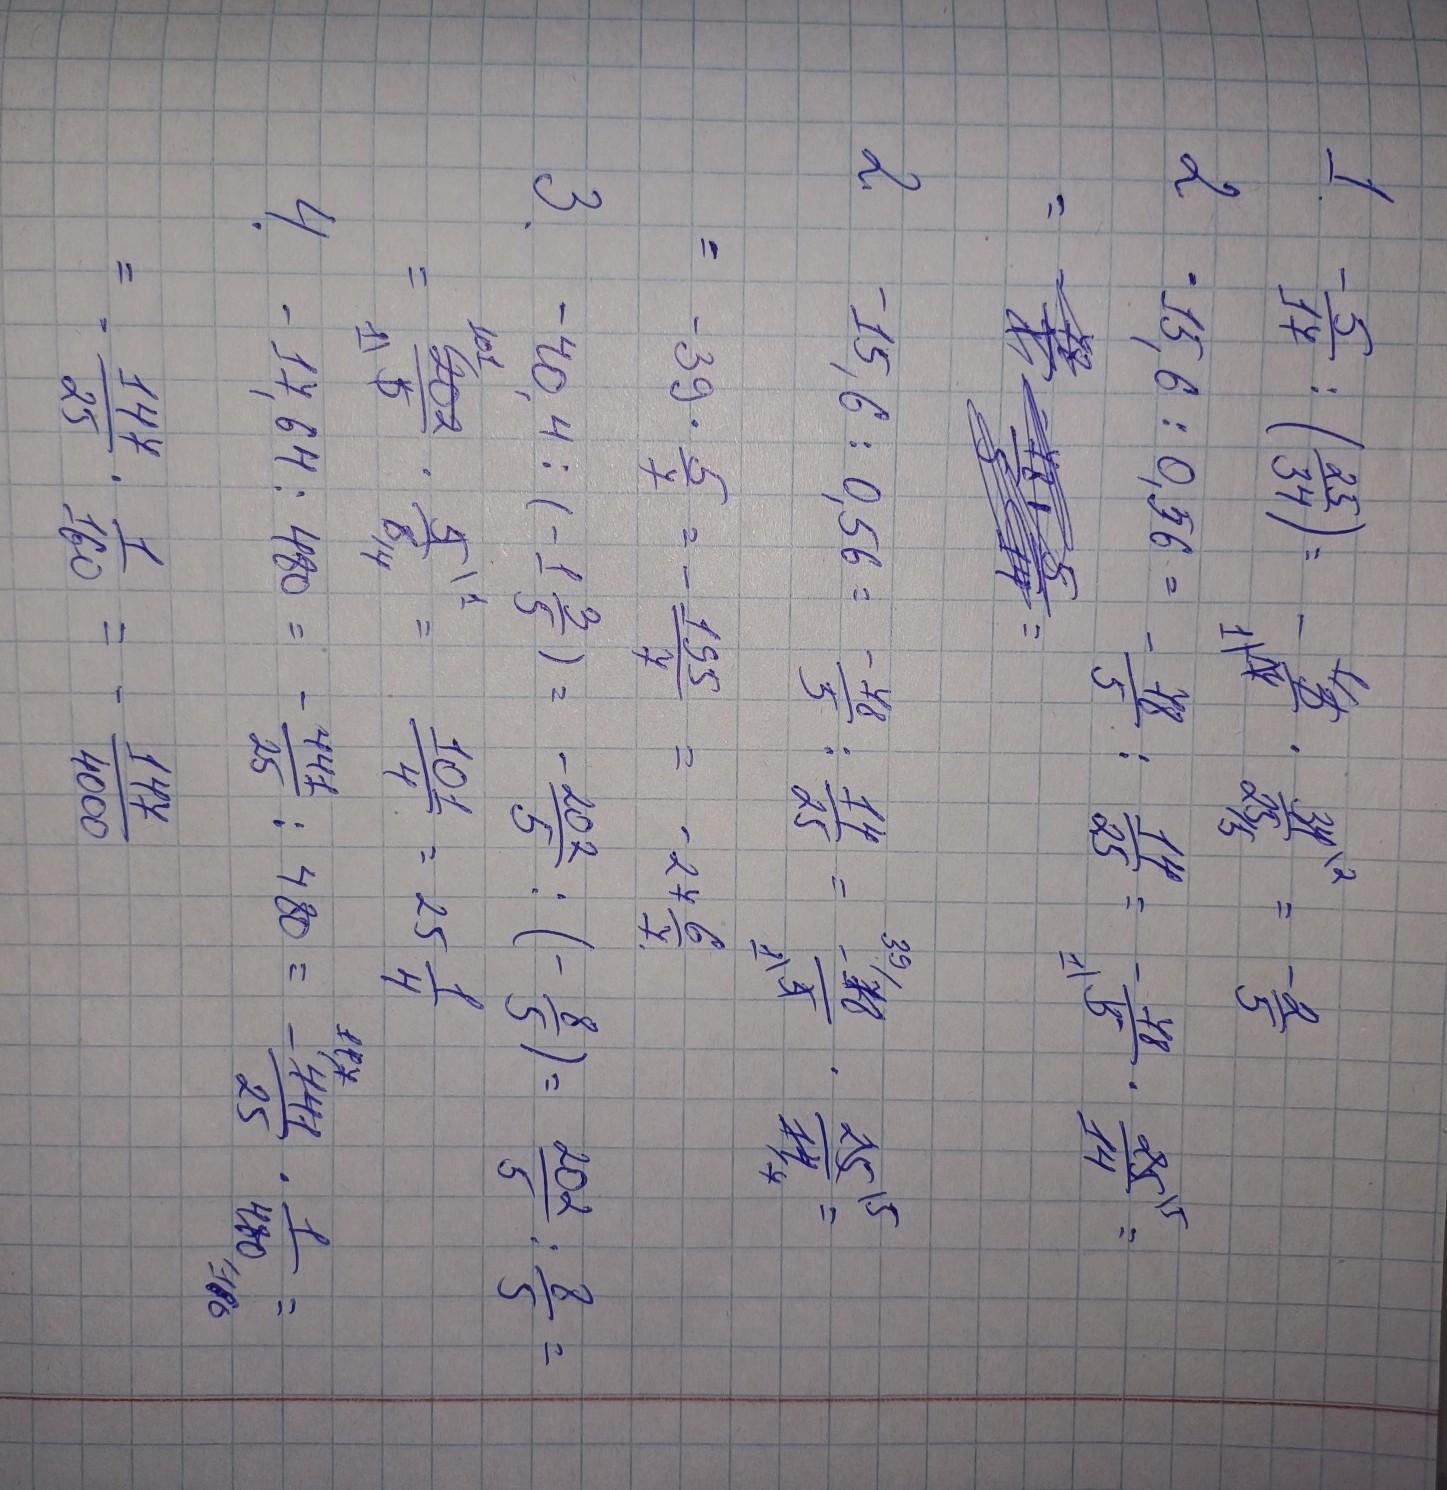 1. -5/17 : (25/34) = - 5/17 · 34/25 = -2/5
2 -15,6 : 0,56 = -78/5 : 14/25 = -78/5 · 25/14 =
=
2 -15,6 : 0,56 = -78/5 : 14/25 = -78/5 · 25/14 =
= -39 · 5/7 = -195/7 = -27 6/7
3. -40,4 : (-1 3/5) = -202/5 : (-8/5) = 202/5 : 8/5 =
= 202/5 · 5/8 = 101/4 = 25 1/4
4. -17,64 : 480 = -441/25 : 480 = -441/25 · 1/480 =
= -147/25 · 1/160 = -147/4000